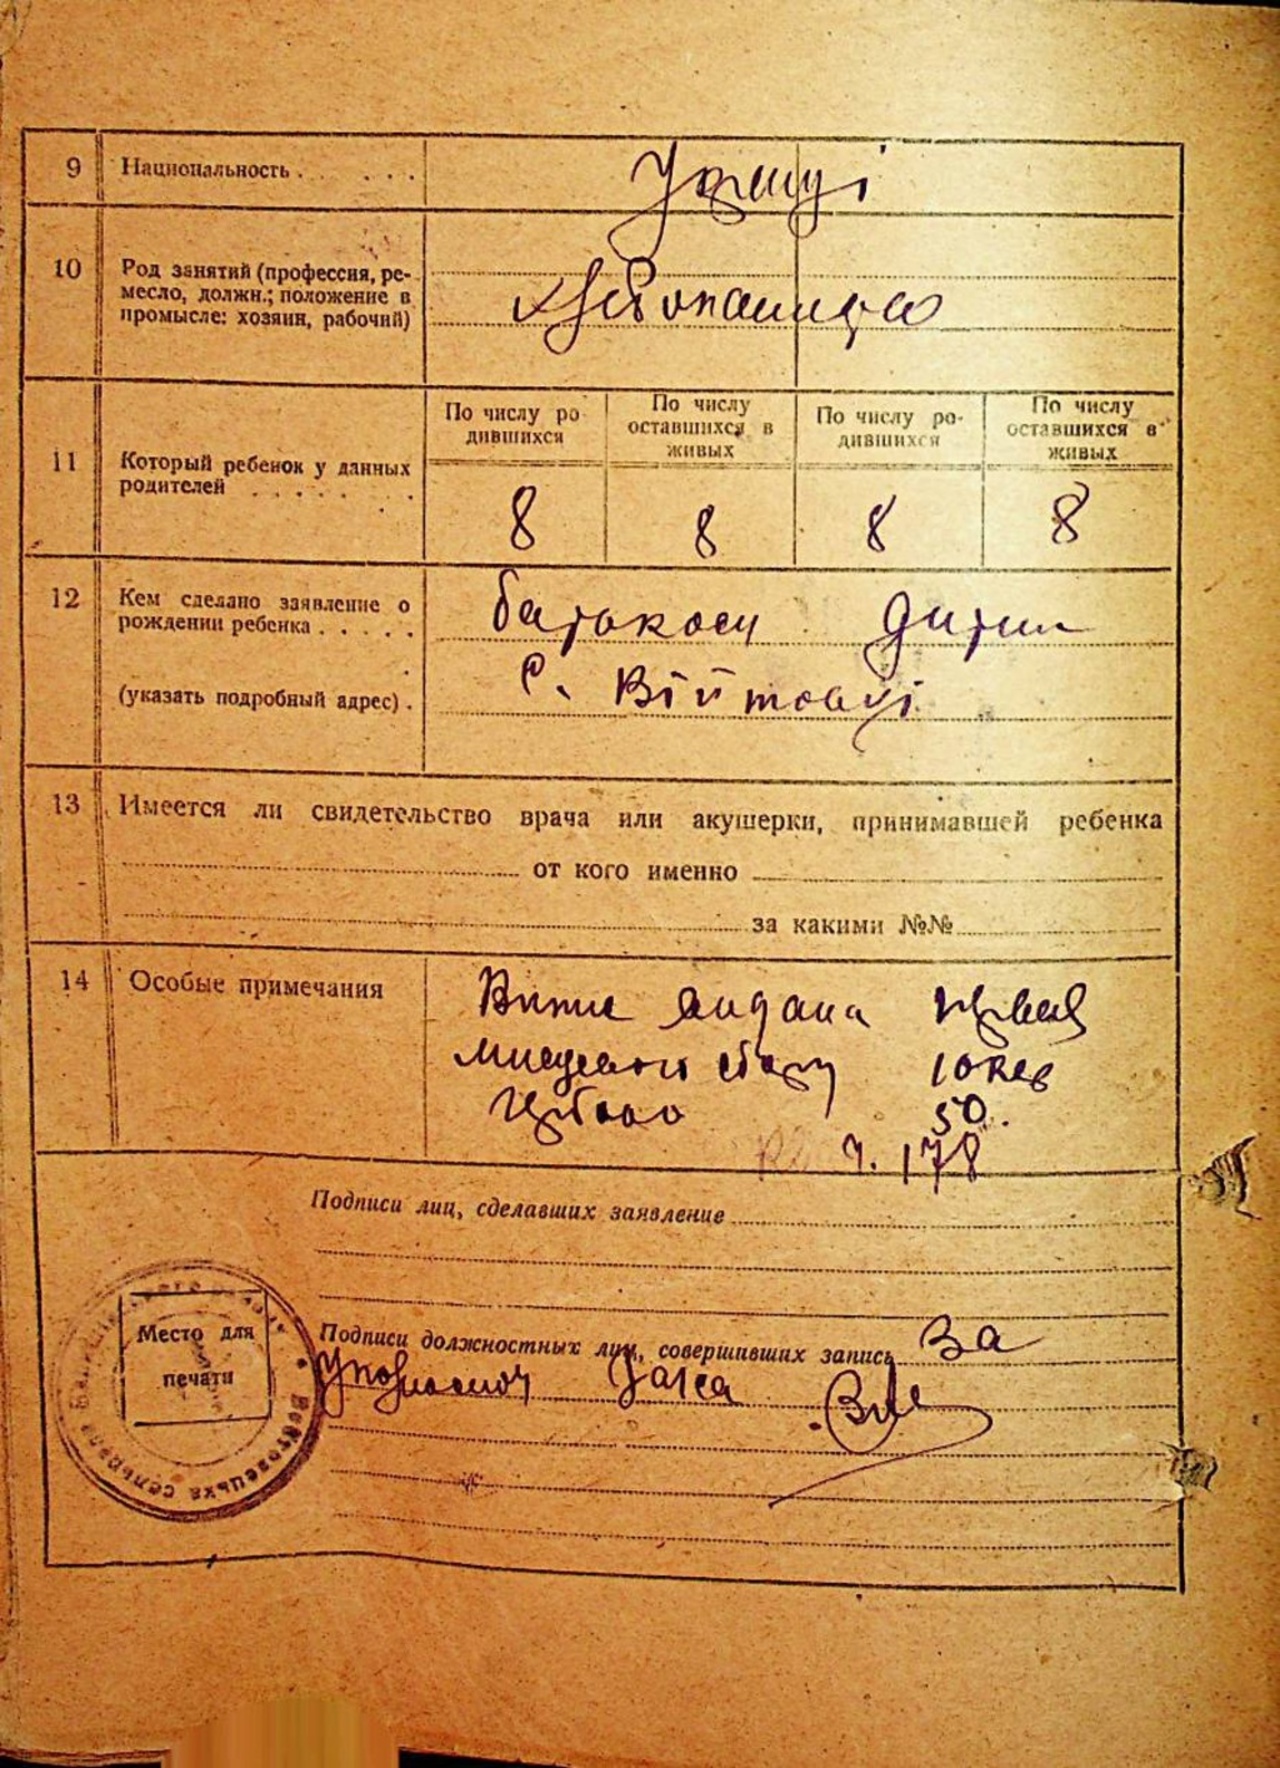 9 Национальность . . . . .
Украінці
10 Род занятий (профессия, ре-
месло, должн.; положение в
промысле: хозяин, рабочий)
11 Который ребенок у данных
родителей . . . . . . .
По числу ро-
дившихся
По числу
оставшихся в
живых
По числу ро-
дившихся
По числу
оставшихся в
живых
8 8 8 8
12 Кем сделано заявление о
рождении ребенка . . . . .
(указать подробный адрес) .
батьком дитини
с. Війтовці
13 Имеется ли свидетельство врача или акушерки, принимавшей ребенка
от кого именно
за какими №№
14 Особые примечания
видана
10 Коп
50.
ч. 178
Подписи лиц, сделавших заявление
Место для
печати
Подписи должностных лиц, совершивших запись За
Загса
Войтовецька сельрада